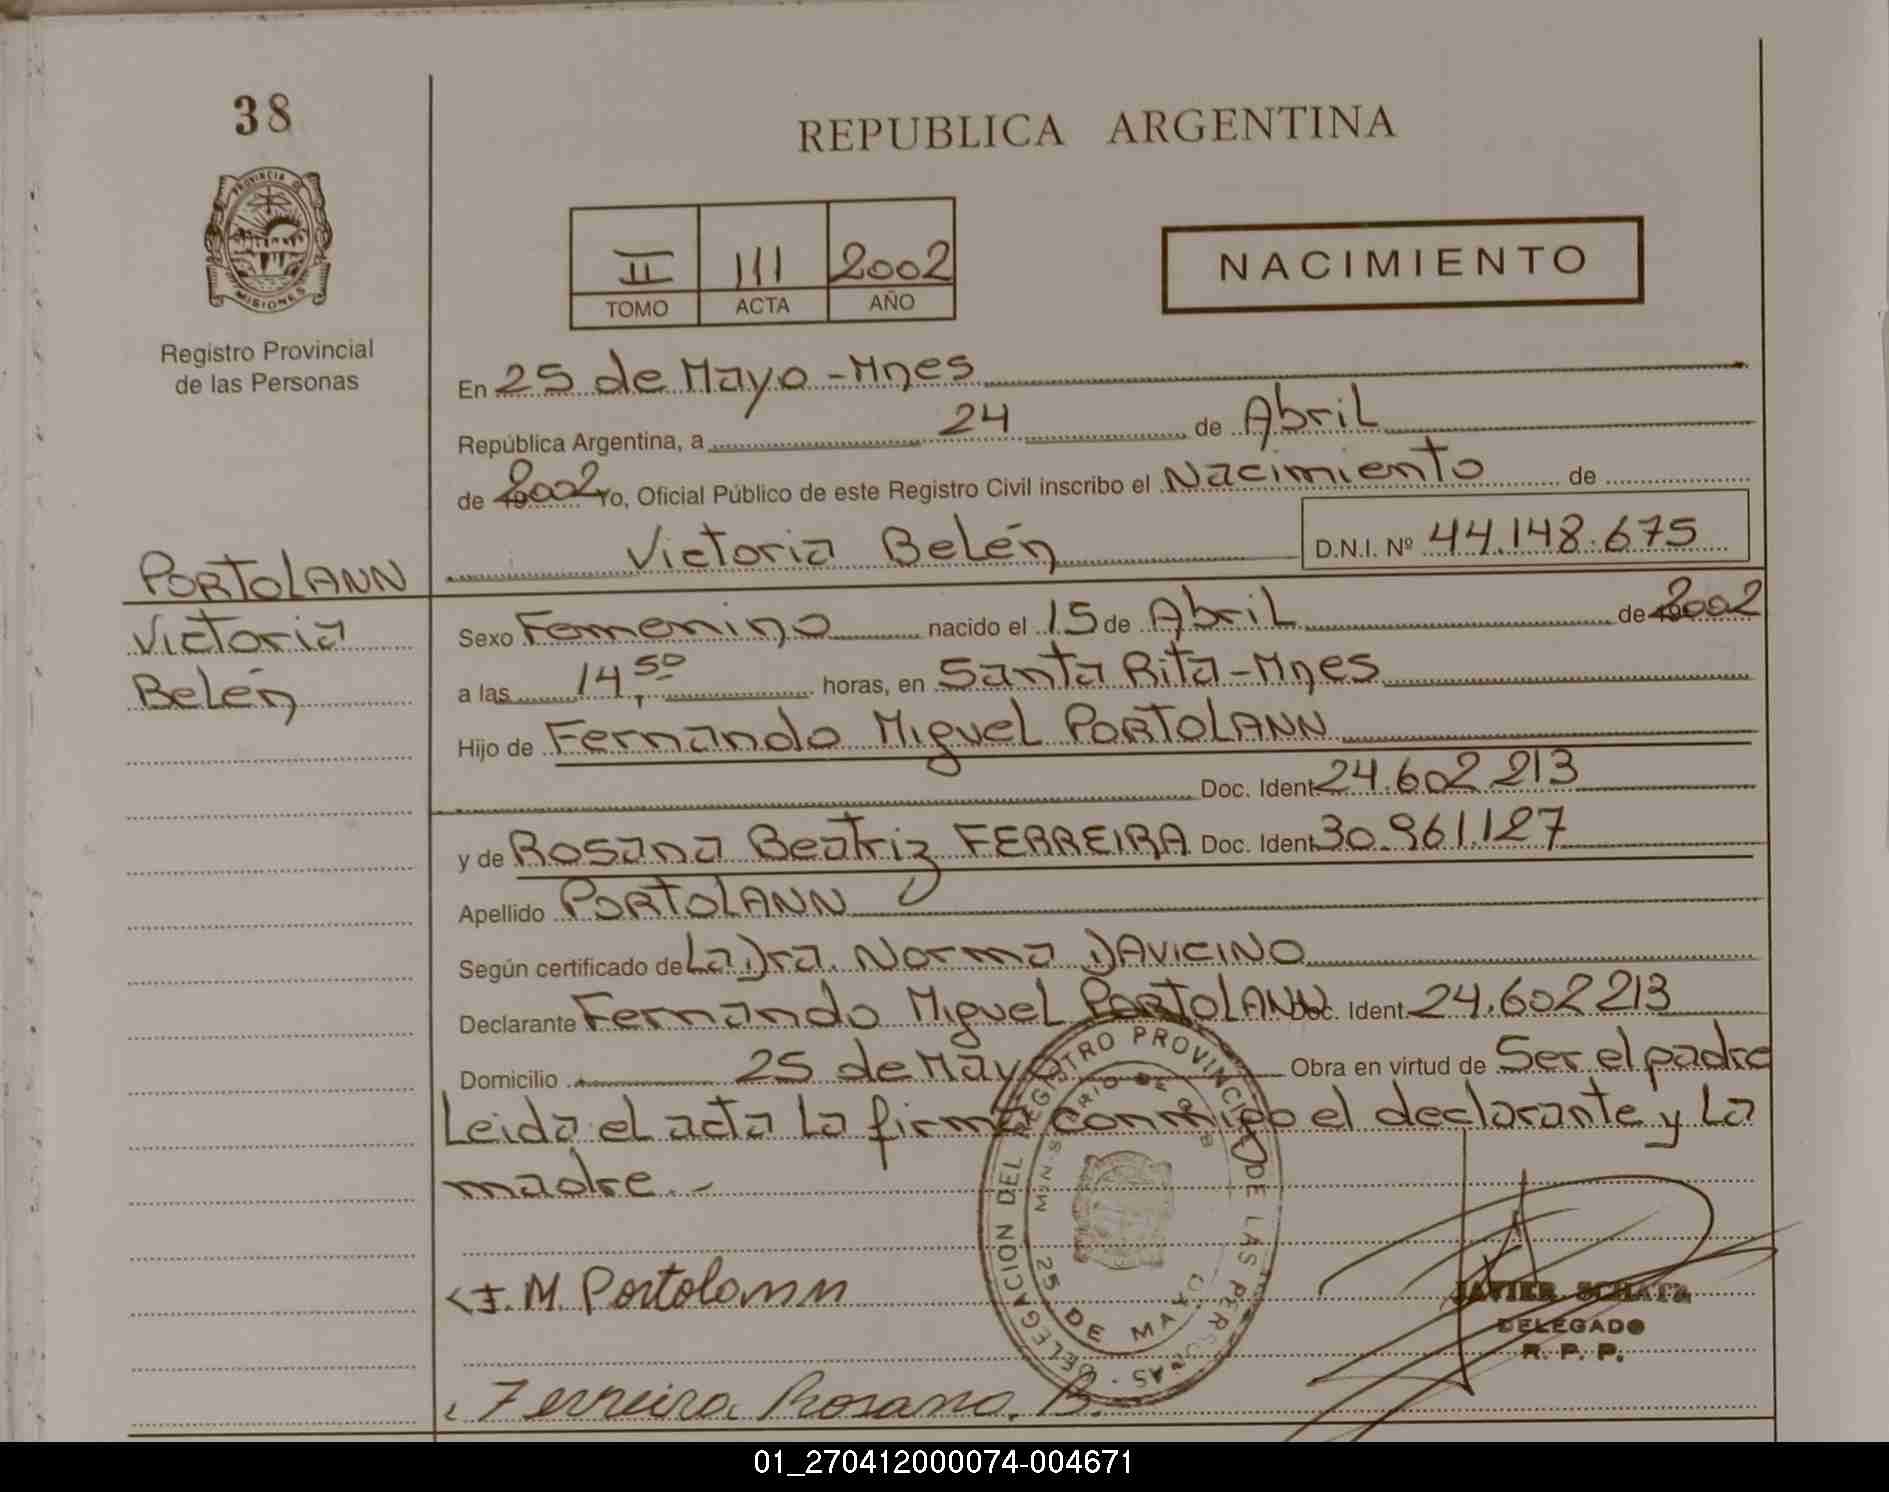 38
REPUBLICA ARGENTINA
PROVINCIA D
MISIONES
Registro Provincial
de las Personas
II 111 2002
TOMO ACTA AÑO
NACIMIENTO
En 25 de Mayo - Mnes
República Argentina, a 24 de Abril
de 2002 Yo, Oficial Público de este Registro Civil inscribo el Nacimiento de
Victoria Belén D.N.I. Nº 44.148.675
PORTOLANN
Victoria
Belén
Sexo Femenino nacido el 15 de Abril de 2002
a las 14,50 horas, en Santa Rita - Mnes
Hijo de Fernando Miguel PORTOLANN
Doc. Ident 24.602 213
y de Rosana Beatriz FERREIRA Doc. Ident 30.961.127
Apellido PORTOLANN
Según certificado de La Dra. Norma DAVICINO
Declarante Fernando Miguel PORTOLANN Doc. Ident. 24.602 213
Domicilio 25 de Mayo Obra en virtud de Ser el padre
Leida el acta La firma conmigo el declarante y La
madre.-
DELEGACION DEL REGISTRO PROVINCIAL DE LAS PERSONAS
25 DE MAYO
F. M. Portolann
JAVIER SCHATZ
DELEGADO
R. P. P.
Ferreira Rosana. B.
01_270412000074-004671